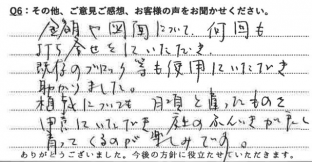 Q6：その他、ご意見ご感想、お客様の声をお聞かせください。
金額や図面について、何回も
打ち合せをしていただき、
既存のブロック等も使用していただき
助かりました。
植栽についても 月頃と違ったものを
用意していただき、庭のふんいきが
違ってくるのが楽しみです。
ありがとうございました。今後の方針に役立たせていただきます。